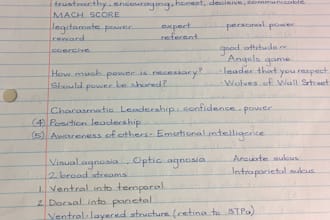 trustworthy, encouraging, honest, decisive, communicable
MACH SCORE
legitamate power expert personal power
reward referent
coercive good attitude ~
Angels game
How much power is necessary? · leader that you respect
Should power be shared? · Wolves of Wall Street
Charasmatic Leadership: confidence, power
(4) Position leadership
(5) Awareness of others - Emotional intelligence
Visual agnosia, Optic agnosia Arcuate sulcus
2 broad streams Intraparietal sulcus
1. Ventral into temporal
2. Dorsal into parietal
Ventral: layered structure (retina to STPa)